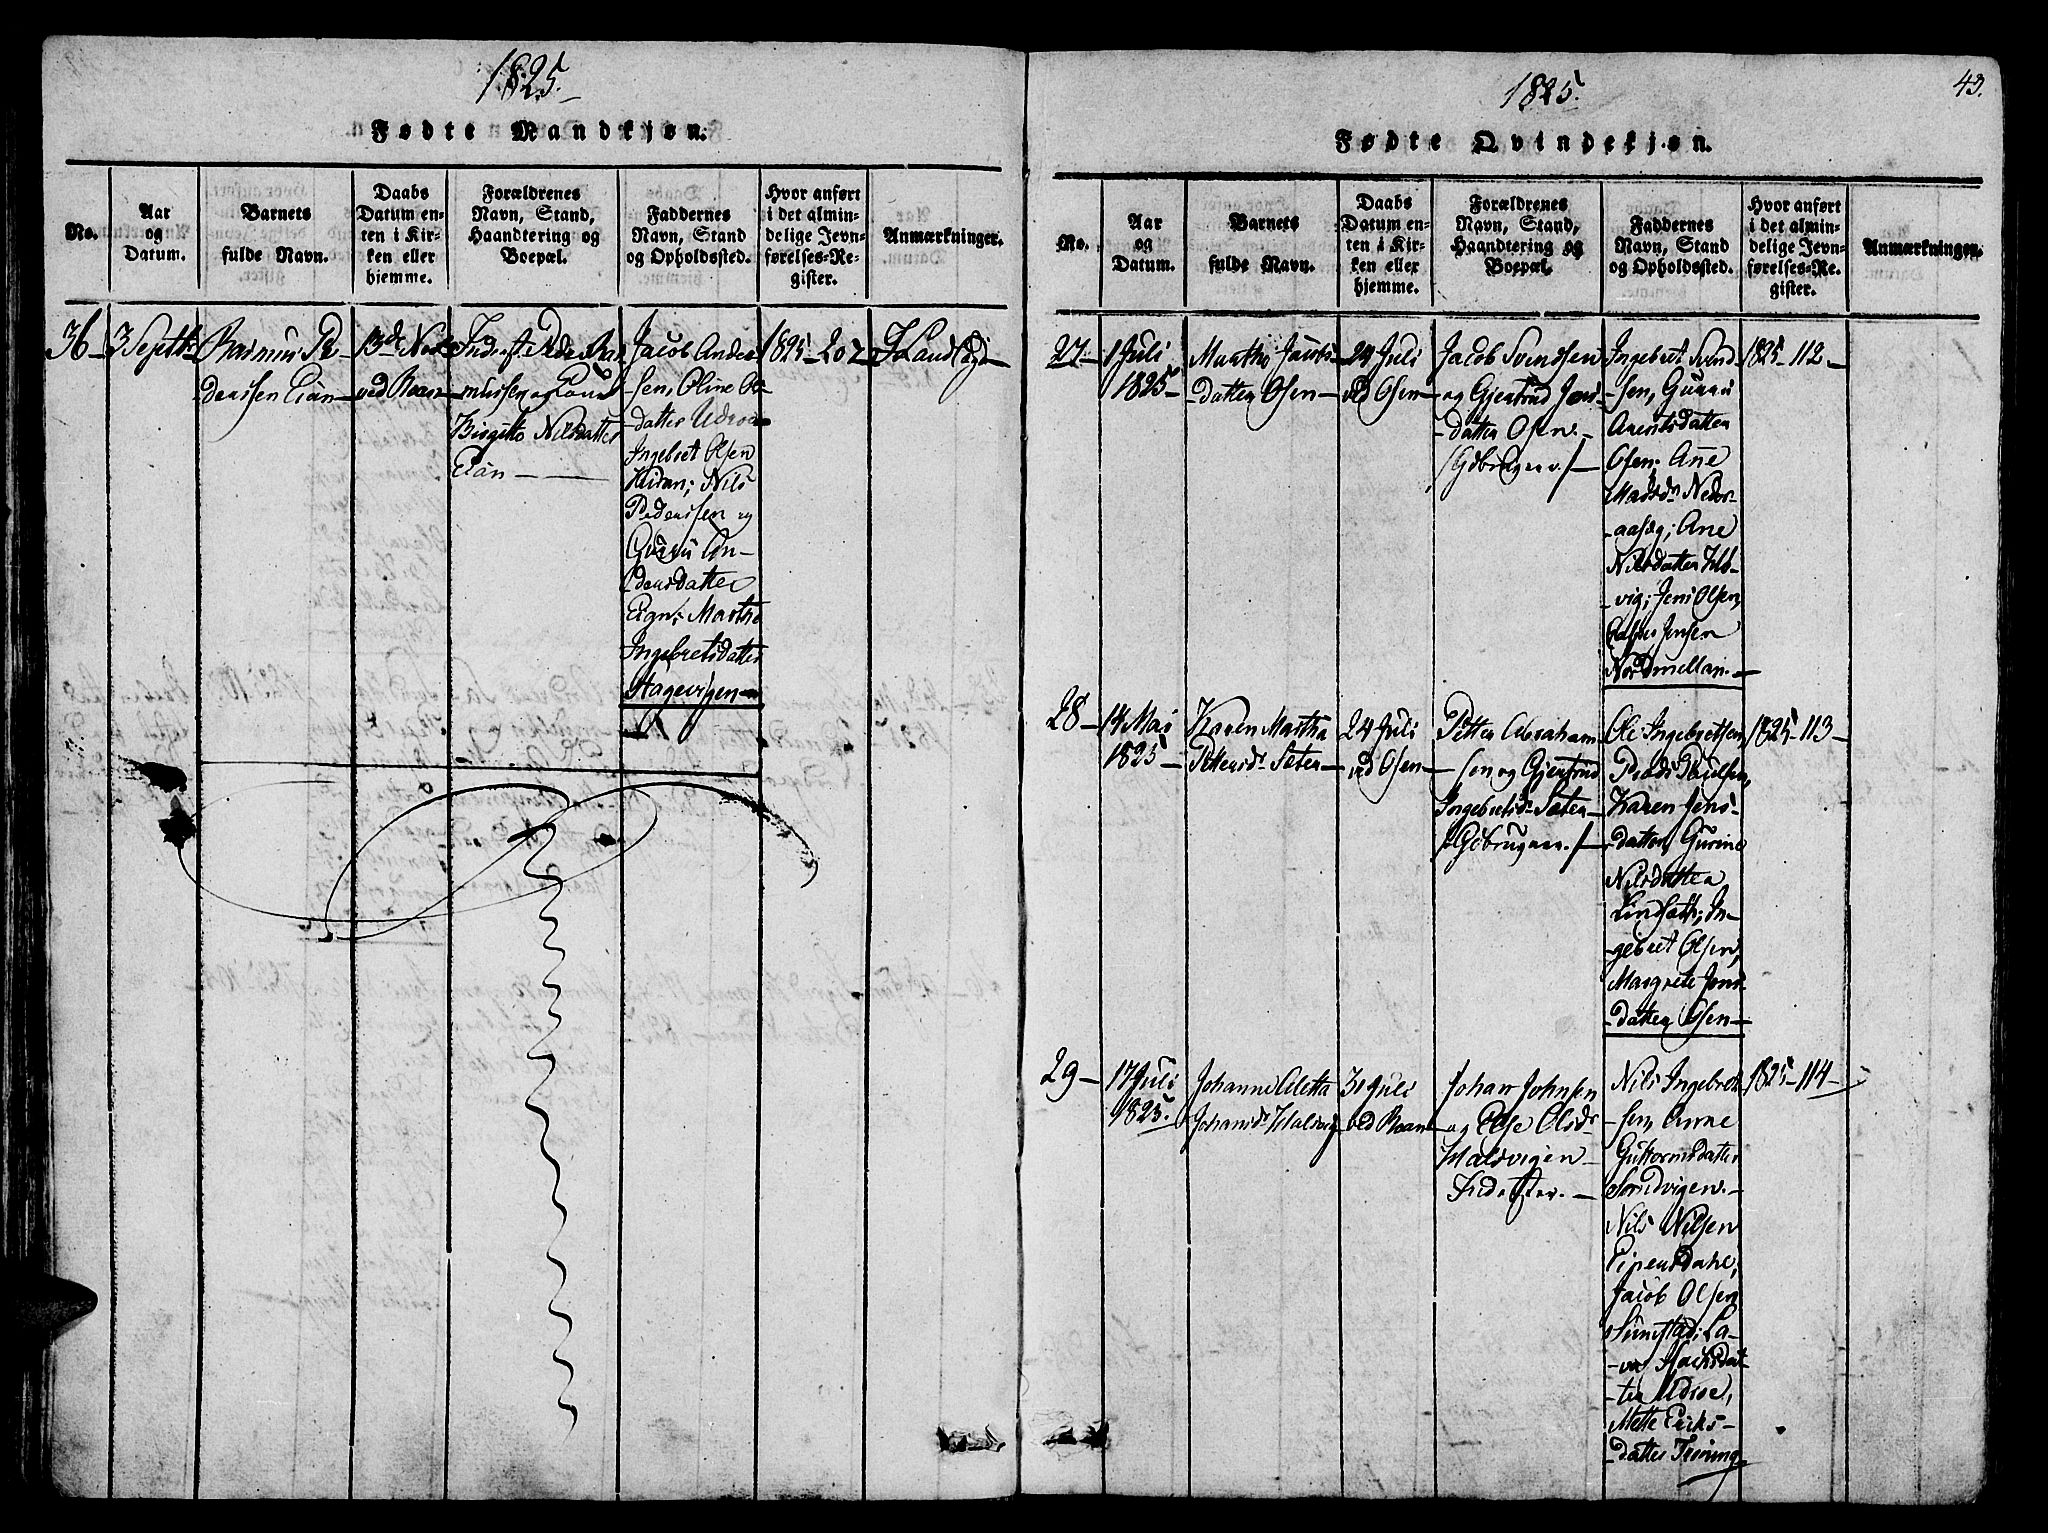 1825.
Fødte Mandkjøn.
No.
Aar
og
Datum.
Barnets
fulde Navn.
Daabs
Datum en-
ten i Kir-
ken eller
hjemme.
Forældrenes
Navn, Stand,
Haandtering og
Boepæl.
Faddernes
Navn, Stand
og Opholdssted.
Hvor anført
i det almin-
delige Jevn-
førelses-Re-
gister.
Anmærkninger.
36-
3 Septb
Rasmus Pe-
dersen Eian-
13de Nov
ved Roan-
Inderste Peder Ras
mussen og Laur
Birgitte Nilsdatter
Eian -
Jacob Ander-
sen, Oline Ol-
datter
Ingebret Olsen
Nils
Pedersen og
Guru An-
dersdatter
Eign; Marthe
Ingebretsdatter
Hagevigen-
1825-202-
1825.
43.
Fødte Qvindekjøn.
No.
Aar
og
Datum.
Barnets
fulde Navn.
Daabs
Datum en-
ten i Kir-
ken eller
hjemme.
Forældrenes
Navn, Stand,
Haandtering og
Boepæl.
Faddernes
Navn, Stand
og Opholdssted.
Hvor anført
i det almin-
delige Jevn-
førelses-Re-
gister.
Anmærkninger.
27-
1 Juli
1825-
Martha Jacobs-
datter Osen-
24 Juli
ved Osen-
Jacob Svendsen
og Gjertrud Jens-
datter Osen-
/Gdbruger./-
Ingebret Svend-
sen, Guru
Arentsdatter
Osen; Ane
Madsdr
Ane
Nilsdatter
vig; Jens Olsen,
Jensen
Nordmellan-
1825-112-
28-
14 Mai
1825-
Karen Martha
Pettersdr Sæter-
24 Juli
ved Osen-
Petter Abraham-
sen og Gjertrud
Ingebretsdr Sæter-
/Gdbruger./-
Ole Ingebretsen,
Peder Poulsen,
Karen Jens-
datter, Gurine
Nilsdatter
Lindsæth; In-
gebret Olsen,
Margrete Jens-
datter Osen-
1825-113-
29-
17 Juli
1825.
Johanna Aletta
Johansdr Halsvig
31 Juli
ved Roan
Johan Johnsen
og Else Olsdr
Halsvigen-
Inderster.-
Nils Ingebret-
sen, Anne
Guttormsdatter
Sandvigen.-
Nils Nilsen
Eipersdahl,
Jacob Olsen
Sumstad; La-
datter
Mette Eriks-
datter Terning
1825-114-